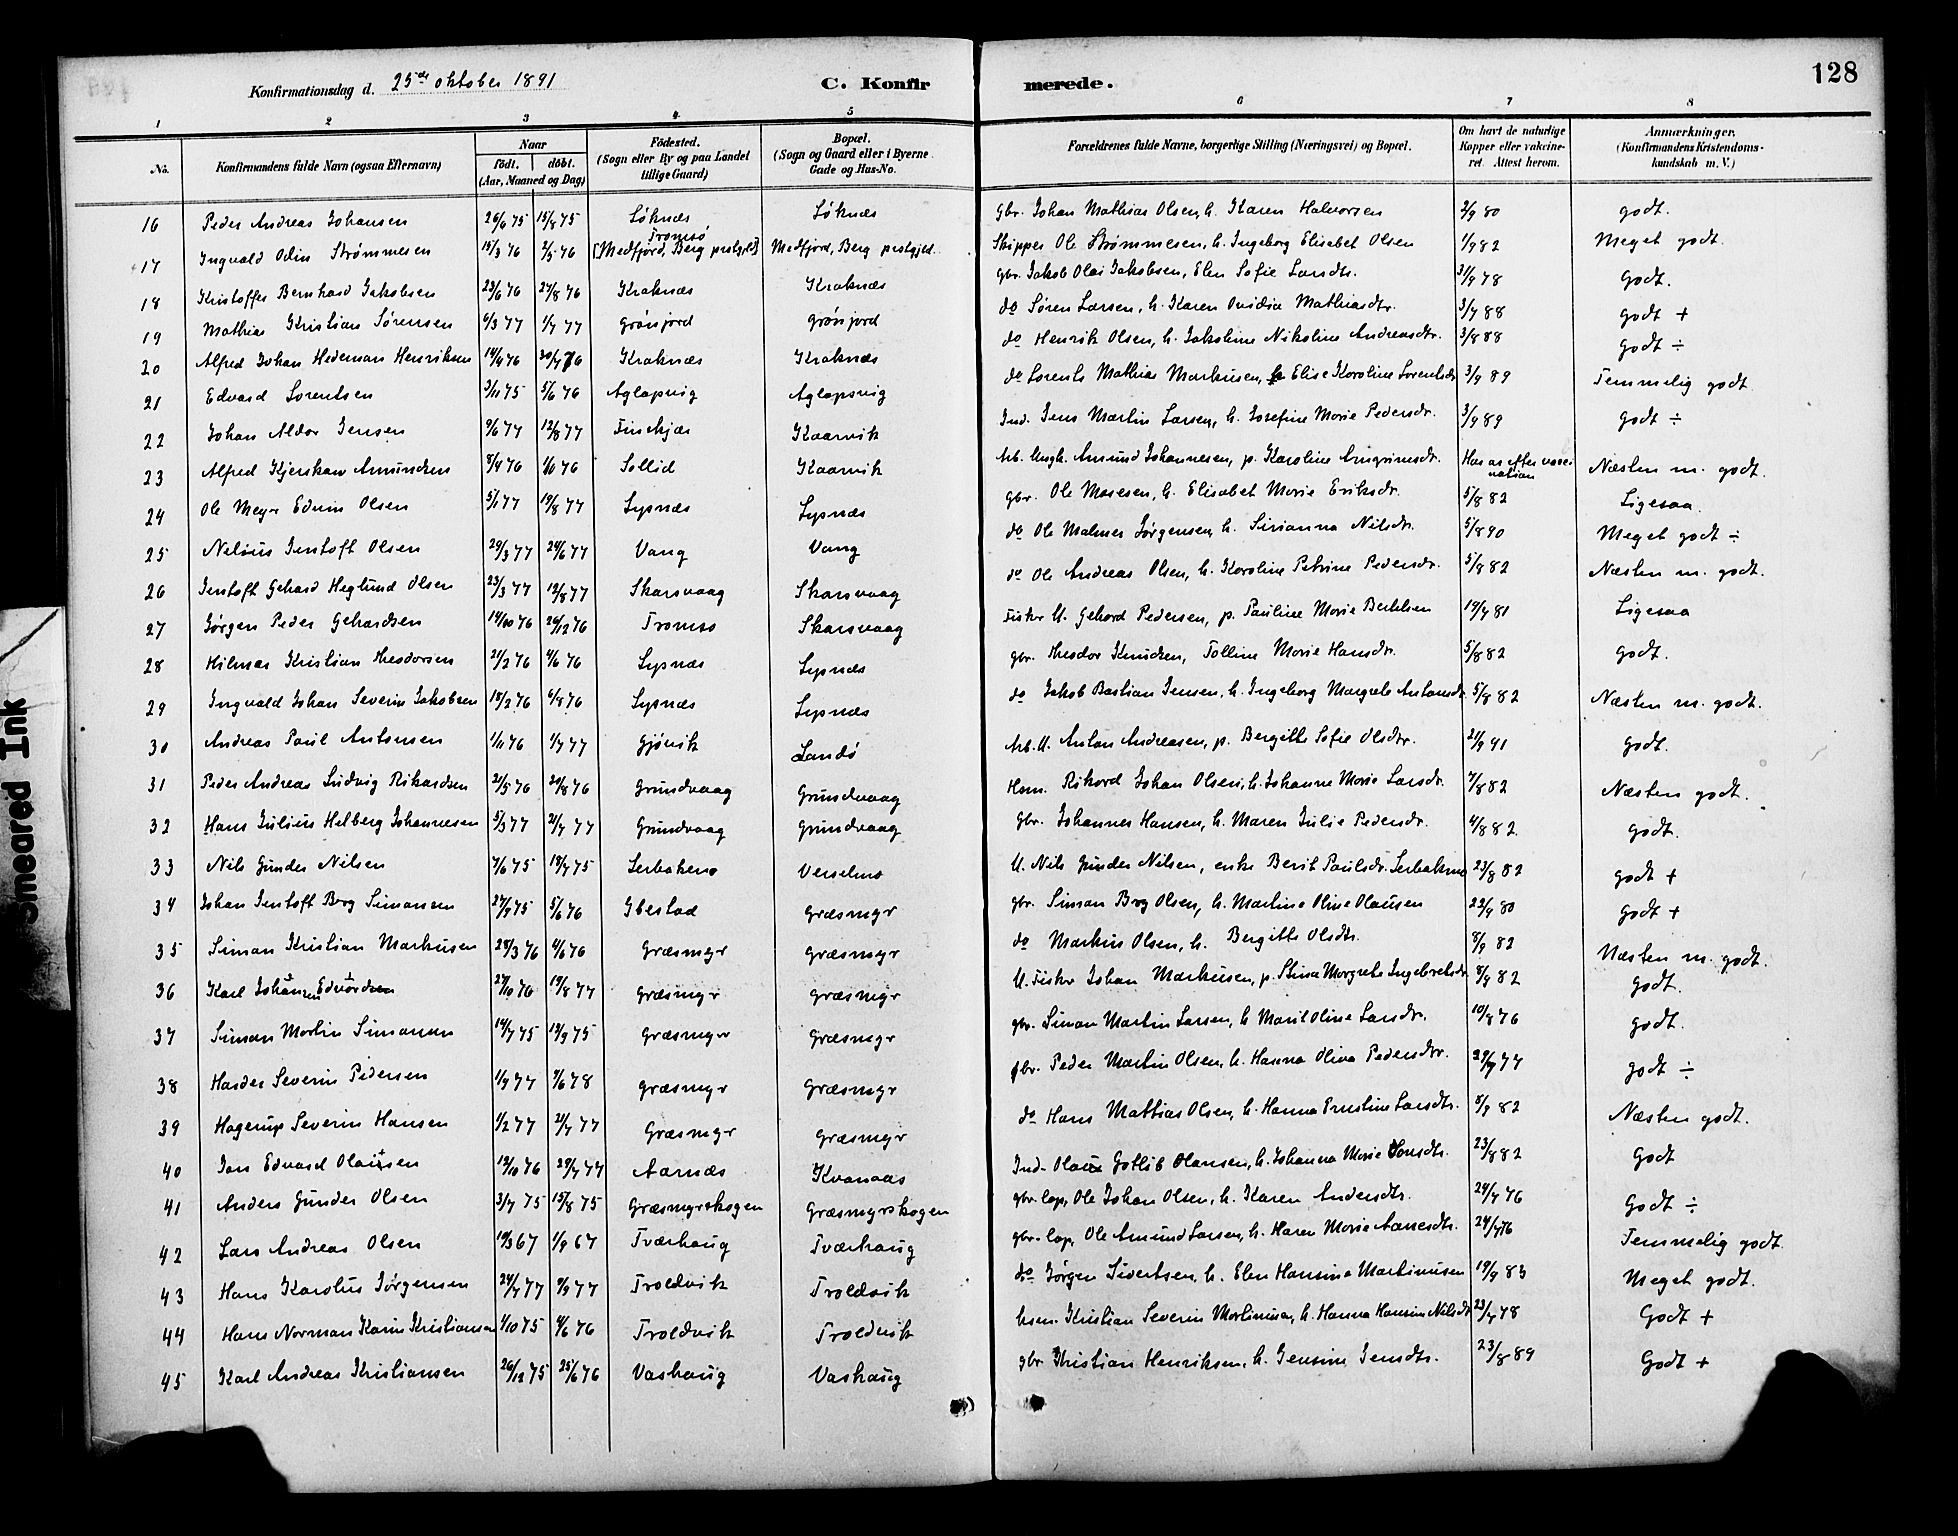 128
Konfirmationsdag d. 25de oktober 1891 C. Konfirmerede.
1 2 3 4 5 6 7 8
No. Konfirmandens fulde Navn (ogsaa Efternavn) Naar født. døbt. (Aar, Maaned og Dag) Fødested. (Sogn eller By og paa Landet tillige Gaard) Bopæl. (Sogn og Gaard eller i Byerne Gade og Hus-No. Forældrenes fulde Navne, borgerlige Stilling (Næringsvei) og Bopæl. Om havt de naturlige Kopper eller vakcineret. Attest herom. Anmærkninger. (Konfirmandens Kristendomskundskab m. V.)
16 Peder Andreas Johansen 26/6 75 15/8 75 Løknæs Løknæs Gbr. Johan Mathias Olsen, h. Karen Halvorsen 2/9 80 godt.
17 Ingvald Odin Strømmesen 15/3 76 2/5 76 Tromsø [Medfjord, Berg prstgjld] Medfjord, Berg prstgjeld. Skipper Ole Strømmesen, h. Ingeborg Elisabet Olsen 1/9 82 Meget godt.
18 Kristoffer Bernhard Jakobsen 23/6 76 27/8 76 Kraknæs Kraknæs gbr. Jakob Olai Jakobsen, Elen Sofie Larsdtr. 31/9 78 Godt.
19 Mathias Kristian Sørensen 6/3 77 1/7 77 Grønjord Grønjord do Søren Larsen, h. Karen Ovidia Mathiasdtr. 3/7 88 godt +
20 Alfred Johan Hedeman Henriksen 14/4 76 30/7 76 Kraknæs Kraknæs do Henrik Olsen, h. Jakobine Nikoline Andreasdtr. 3/8 88 godt ÷
21 Edvard Lorentsen 3/11 75 5/6 76 Aglapsvig Aglapsvig do Lorents Mathias Markusen, h Elise Karoline Lorentsdtr 3/9 89 Temmelig godt
22 Johan Aldor Jensen 9/6 77 12/8 77 Finskjær Kaarvik Ind. Jens Martin Larsen, h. Josefine Marie Pedersdtr. 3/9 89 godt ÷
23 Alfred Kjerskow Amundsen 8/4 76 1/10 76 Sollid Kaarvik Arb. Ungk. Amund Johannesen, p. Karoline Arngrimsdtr. Har ar efter vaccination Næsten m. godt.
24 Ole Meyer Edvin Olsen 5/1 77 19/8 77 Lysnæs Lysnæs gbr. Ole Mosesen, h. Elisabet Marie Eriksdr. 5/8 82 Ligesaa.
25 Nelius Jentoft Olsen 29/3 77 24/6 77 Vang Vang do Ole Malmer Jørgensen, h. Sirianna Nilsdr. 5/8 90 Meget godt ÷
26 Jentoft Gehard Heglund Olsen 23/3 77 12/8 77 Skarsvaag Skarsvaag do Ole Andreas Olsen, h. Karoline Petrine Pedersdr. 5/8 82 Næsten m. godt.
27 Jørgen Peder Gehardsen 14/10 76 26/12 76 Tromsø Skarsvaag Fisker U. Gehard Pedersen, p. Pauline Marie Bertelsen 19/7 81 Ligesaa
28 Hilmar Kristian Theodorsen 21/2 76 4/6 76 Lysnæs Lysnæs gbr. Theodor Knudsen, Tolline Marie Hansdr. 5/8 82 godt.
29 Ingvald Johan Severin Jakobsen 18/2 76 6/8 76 Lysnæs Lysnæs do Jakob Bastian Jensen, h. Ingeborg Margrete Antonsdr. 5/8 82 Næsten m. godt.
30 Andreas Paul Antonsen 1/11 76 1/7 77 Gjøvik Landø Arb. U. Anton Andreasen, p. Bergitte Sofie Olsdtr. 21/9 91 godt.
31 Peder Andreas Ludvig Rikardsen 21/5 76 20/8 76 Grundvaag Grundvaag Hsm. Rikard Johan Olsen, h. Johanne Marie Larsdr. 7/8 82 Næsten godt.
32 Hans Julius Helberg Johannesen 5/3 77 21/7 77 Grundvaag Grundvaag Gbr. Johannes Hansen, h. Maren Julie Pedersdr. 4/8 82 godt.
33 Nils Gunder Nilsen 7/6 75 18/7 75 Lerbakens U. Nils Gunder Nilsen, enke Berit Paulsdr. 23/8 82 godt +
34 Johan Jentoft Berg Simonsen 27/9 75 5/6 76 Ibestad Græsmyr gbr. Simon Brg Olsen, h. Martine Oline Olausen 22/9 80 godt +
35 Simon Kristian Markusen 28/3 76 4/6 76 Græsmyr Græsmyr do Markus Olsen, h. Bergitte Olsdtr. 8/9 82 Næsten m. godt.
36 Karl Johansen Edvardsen 27/10 76 19/8 77 Græsmyr Græsmyr U. Fisker Johan Markusen, p. Stina Margrete Ingebretsdr. 8/9 82 godt.
37 Simon Martin Simonsen 14/7 75 19/9 75 Græsmyr Græsmyr gbr. Simon Martin Larsen, h Marit Oline Larsdr. 10/8 76 godt.
38 Harder Severin Pedersen 1/9 77 9/6 78 Græsmyr Græsmyr gbr. Peder Martin Olsen, h. Hanna Oliva Pedersdtr. 29/9 77 godt ÷
39 Hagerup Severin Hansen 1/2 77 21/7 77 Græsmyr Græsmyr do Hans Mathias Olsen, h. Hanna Ernstine Larsdtr. 8/9 82 Næsten godt.
40 Jan Edvard Olaisen 19/10 76 29/7 77 Aarnæs Kvanaas Ind. Olaus Gotlib Olausen, h. Johanna Marie Jonsdtr. 23/8 82 Godt
41 Anders Gunder Olsen 3/7 75 15/8 75 Græsmyrskogen Græsmyrskogen gbr. lap, Ole Johan Olsen, h. Karen Andersdtr. 24/7 76 Godt ÷
42 Lars Andreas Olsen 19/3 67 1/9 67 Tværhaug Tværhaug gbr. lap, Ole Amund Larsen, h. Karen Marie Aanesdtr. 24/7 76 Temmelig godt.
43 Hans Karolus Jørgensen 24/7 77 9/9 77 Troldvik Troldvik do Jørgen Sivertsen, h. Elen Hansina Martinusen 19/9 83 Meget godt.
44 Hans Norman Karin Kristiansen 1/10 75 4/6 76 Troldvik Troldvik hsm. Kristian Severin Martinusen, h. Hanna Hansine Nilsdtr 23/7 78 Godt +
45 Karl Andreas Kristiansen 26/12 75 25/6 76 Vashaug Vashaug gbr Kristian Henriksen, h. Jensine Jensdtr. 23/8 89 Godt +
Smeared Ink